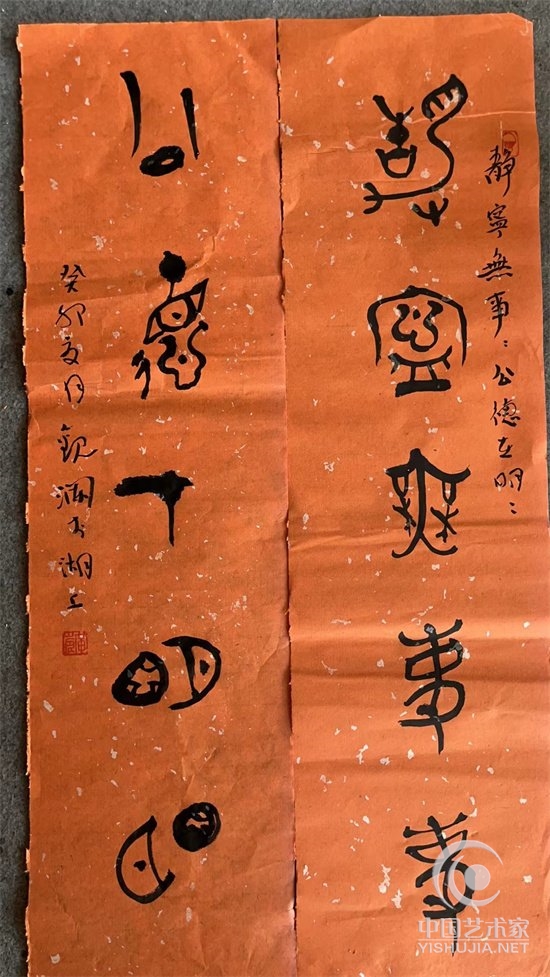 靜寧無事〻公德在明〻
靜寧無事事
公德在明明
癸卯夏月觀瀾書湖上
中国艺术家
YISHUJIA.NET